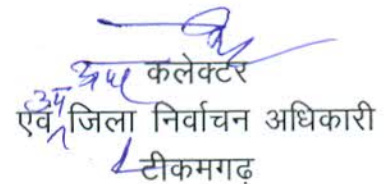 अपर कलेक्टर
एवं उप जिला निर्वाचन अधिकारी
टीकमगढ़